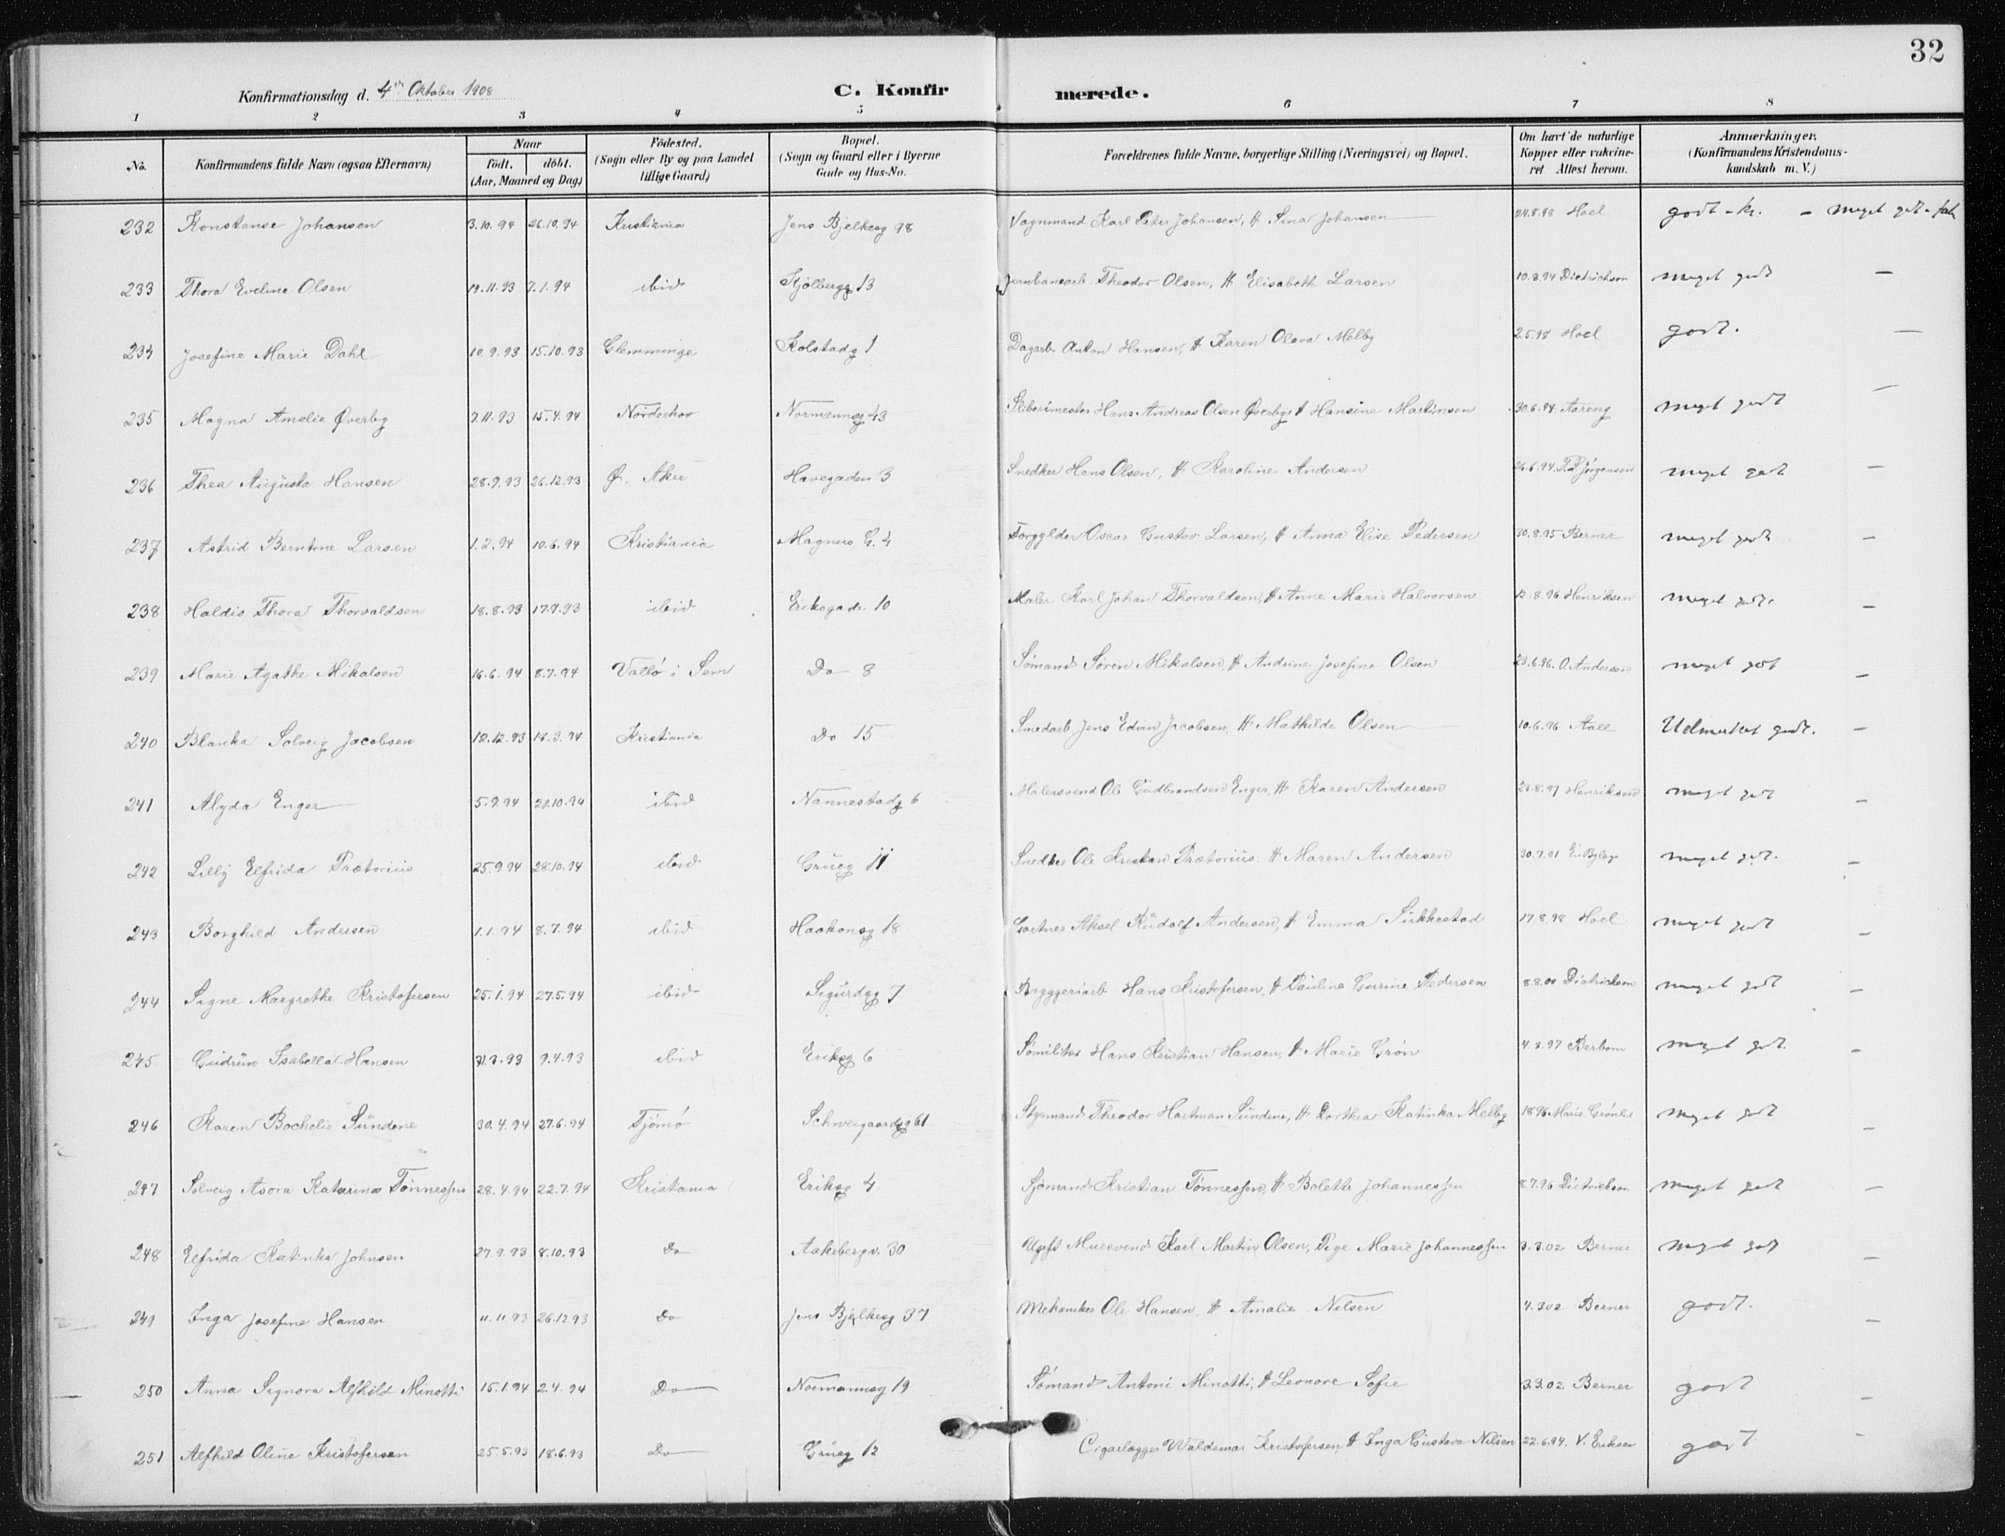 32
Konfirmationsdag d. 4de Oktober 1908
C. Konfirmerede.
1 2 3 4 5 6 7 8
No. Konfirmandens fulde Navn (ogsaa Efternavn) Naar født. døbt. (Aar, Maaned og Dag) Fødested. (Sogn eller By og paa Landet tillige Gaard) Bopæl. (Sogn og Gaard eller i Byerne Gade og Hus-No. Forældrenes fulde Navne, borgerlige Stilling (Næringsvei) og Bopæl. Om havt de naturlige Kopper eller vakcineret Attest herom. Anmærkninger. (Konfirmandens Kristendomskundskab m. V.)
232 Konstanse Johansen 3.10.94 26.10.94 Kristiania Jens Bjelkesg 98 Vognmand Karl Peter Johansen, H Sina Johansen 24.8.98 Hoel godt
233 Thora Eveline Olsen 19.11.93 7.1.94 ibid Kjølbergg 13 Jernbanearb Theodor Olsen, H Elisabeth Larsen 10.8.94 Dietrichson meget godt —
234 Josefine Marie Dahl 10.9.93 15.10.93 Glemminge Kolstadg 1 Dagarb Anton Hansen, H Karen Olava Melby 2.5.98 Hoel godt. —
235 Magna Amalie Øverby 7.11.93 15.4.94 Norderhov Normannsg 43 Skibsrimester Hans Andreas Olsen Øverby, H Hansine Martinsen 30.6.94 Aareng meget godt —
236 Thea Augusta Hansen 28.9.93 26.12.93 Ø. Aker Havegaden 3 Snedker Hans Olsen, H Karoline Andersen 26.6.94 Jørgensen meget godt —
237 Astrid Berntine Larsen 1.2.94 10.6.94 Kristiania Magnus G. 4 Forgylder Oscar Gustav Larsen, H Anna Elise Pedersen 30.8.95 Berner meget godt —
238 Haldis Thora Thorvaldsen 18.8.93 17.9.93 ibid Eriksgade 10 Maler Karl Johan Thorvaldsen, H Anne Marie Halvorsen 12.8.96 Henriksen meget godt. —
239 Marie Agathe Mikalsen 16.6.94 8.7.94 Vallø i Sem Do 8 Sømand Søren Mikalsen, H Andrine Josefine Olsen 23.6.96. O. Andersen meget godt —
240 Blanka Solveig Jacobsen 18.12.93 18.3.94 Kristiania Do 15 Smedarb Jens Edvin Jacobsen, H Mathilde Olsen 10.6.96 Aall Udmerket godt. —
241 Alyda Enger 5.9.94 21.10.94 ibid Nannestadg 6 Malersvend Ole Gudbrandsen Enger, H Karen Andersen 21.8.97 Henriksen meget godt —
242 Lilly Elfrida Prætorius 25.9.94 28.10.94 ibid Grüeg 11 Snedker Ole Kristian Prætorius. H Maren Andersen 30.7.01 meget godt. —
243 Borghild Andersen 1.1.94 8.7.94 ibid Haakonsg 18 Gartner Aksel Rudolf Andersen, H Emma Sikkestad 17.8.98 Hoel meget godt —
244 Sagne Margrethe Kristofersen 25.1.94 27.5.94 ibid Sigurdsg 7 Bryggeriarb Hans Kristofersen, H Pauline Gurine Pedersen 8.8.00 Dietrichson meget godt —
245 Gudrun Isabella Hansen 31.3.93 9.4.93 ibid Eriksg 6 Hans Kristian Hansen, H Marie Grøn 4.8.97 Berbom meget godt. —
246 Karen Bochelie Sundene 30.4.94 27.6.94 Tjømø Schweigaardsg 61 Styrmand Theodor Hartman Sundene, H Dorthea Katinka Melby 1896 Marie Grønli meget godt —
247 Solveig Asora Katarina Tønnessen 28.4.94 22.7.94 Kristiania Eriksg 4 Sjømand Kristian Tønnessen, H Bolette Johannessen 8.7.96 Dietrichson meget godt —
248 Elfrida Katinka Johnsen 27.9.93 8.10.93 Do Aakebergv. 30 Ugift Mursvend Karl Martin Olsen, Pige Marie Johannessen 3.3.02 Berner meget godt —
249 Inga Josefine Hansen 11.11.93 26.12.93 Do Jens Bjelkesg 37 Mekaniker Ole Hansen, H Amalie Nilsen 4.3.02 Berner godt. —
250 Anna Signora Alfhild Minotti 15.1.94 2.4.94 Do Normannsg 19 Sømand Antoni Minotti, H Leonore Sofie 3.3.02 Berner godt —
251 Alfhild Oline Kristofersen 25.5.93 18.6.93 Do Grüeg 12 Cigarlægger Waldemar Kristofersen, H Inga Gustava Nilsen 22.6.94. V. Eriksen godt —